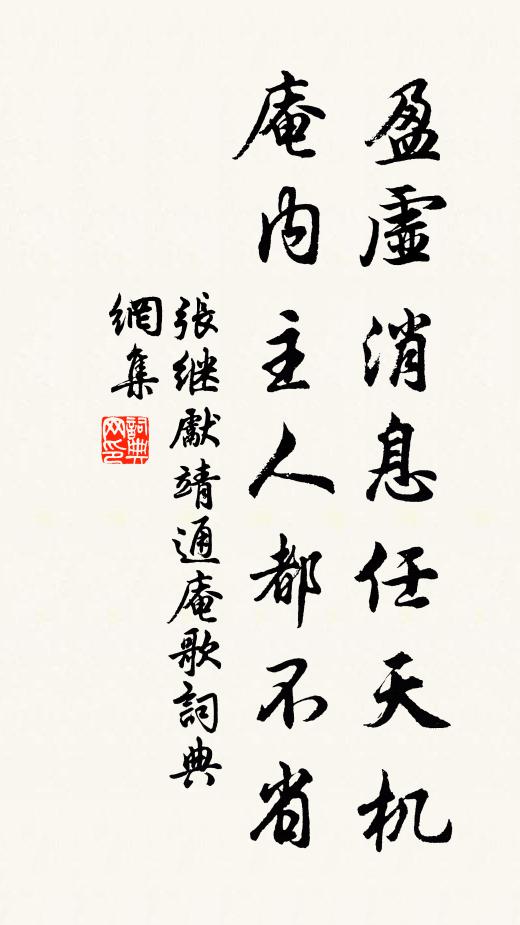 盈虛消息任天机
庵内主人都不省
張继獻靖通庵歌詞典
網集
詞典
网印